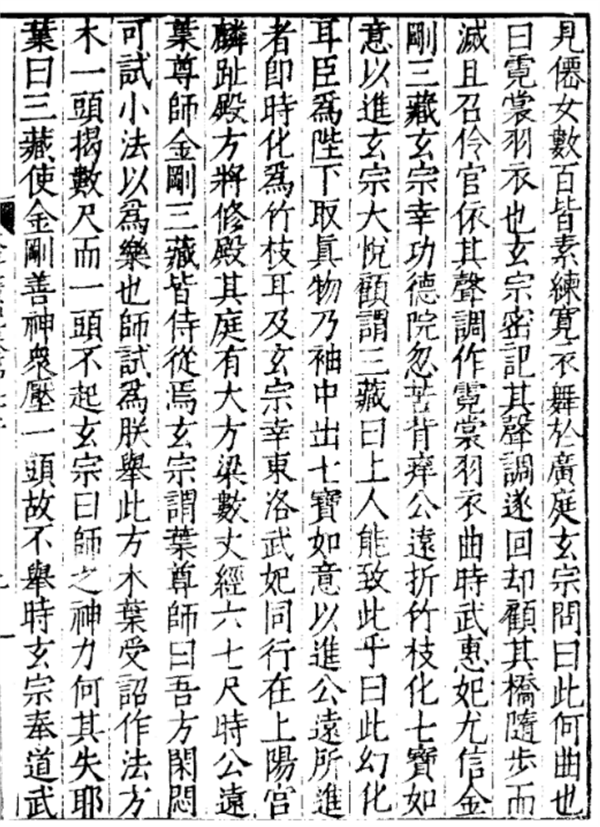 見僊女數百皆素練寛衣舞於廣庭玄宗問曰此何曲也
曰霓裳羽衣也玄宗密記其聲調遂回却顧其橋隨步而
滅且召伶官依其聲調作霓裳羽衣曲時武惠妃尤信金
剛三藏玄宗幸功德院忽苦背癢公遠折竹枝化七寶如
意以進玄宗大悅顧謂三藏曰上人能致此乎曰此幻化
耳臣爲陛下取眞物乃袖中出七寶如意以進公遠所進
者卽時化爲竹枝耳及玄宗幸東洛武妃同行在上陽宮
麟趾殿方將修殿其庭有大方梁數丈經六七尺時公遠
葉尊師金剛三藏皆侍從焉玄宗謂葉尊師曰吾方閑悶
可試小法以爲樂也師試爲朕舉此方木葉受詔作法方
木一頭揭數尺而一頭不起玄宗曰師之神力何其失耶
葉曰三藏使金剛善神衆壓一頭故不舉時玄宗奉道武